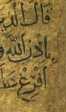 قَالَ الَّذ
إِذْنِ اللَّهِ وَ
أَفْرِغْ عَلَ